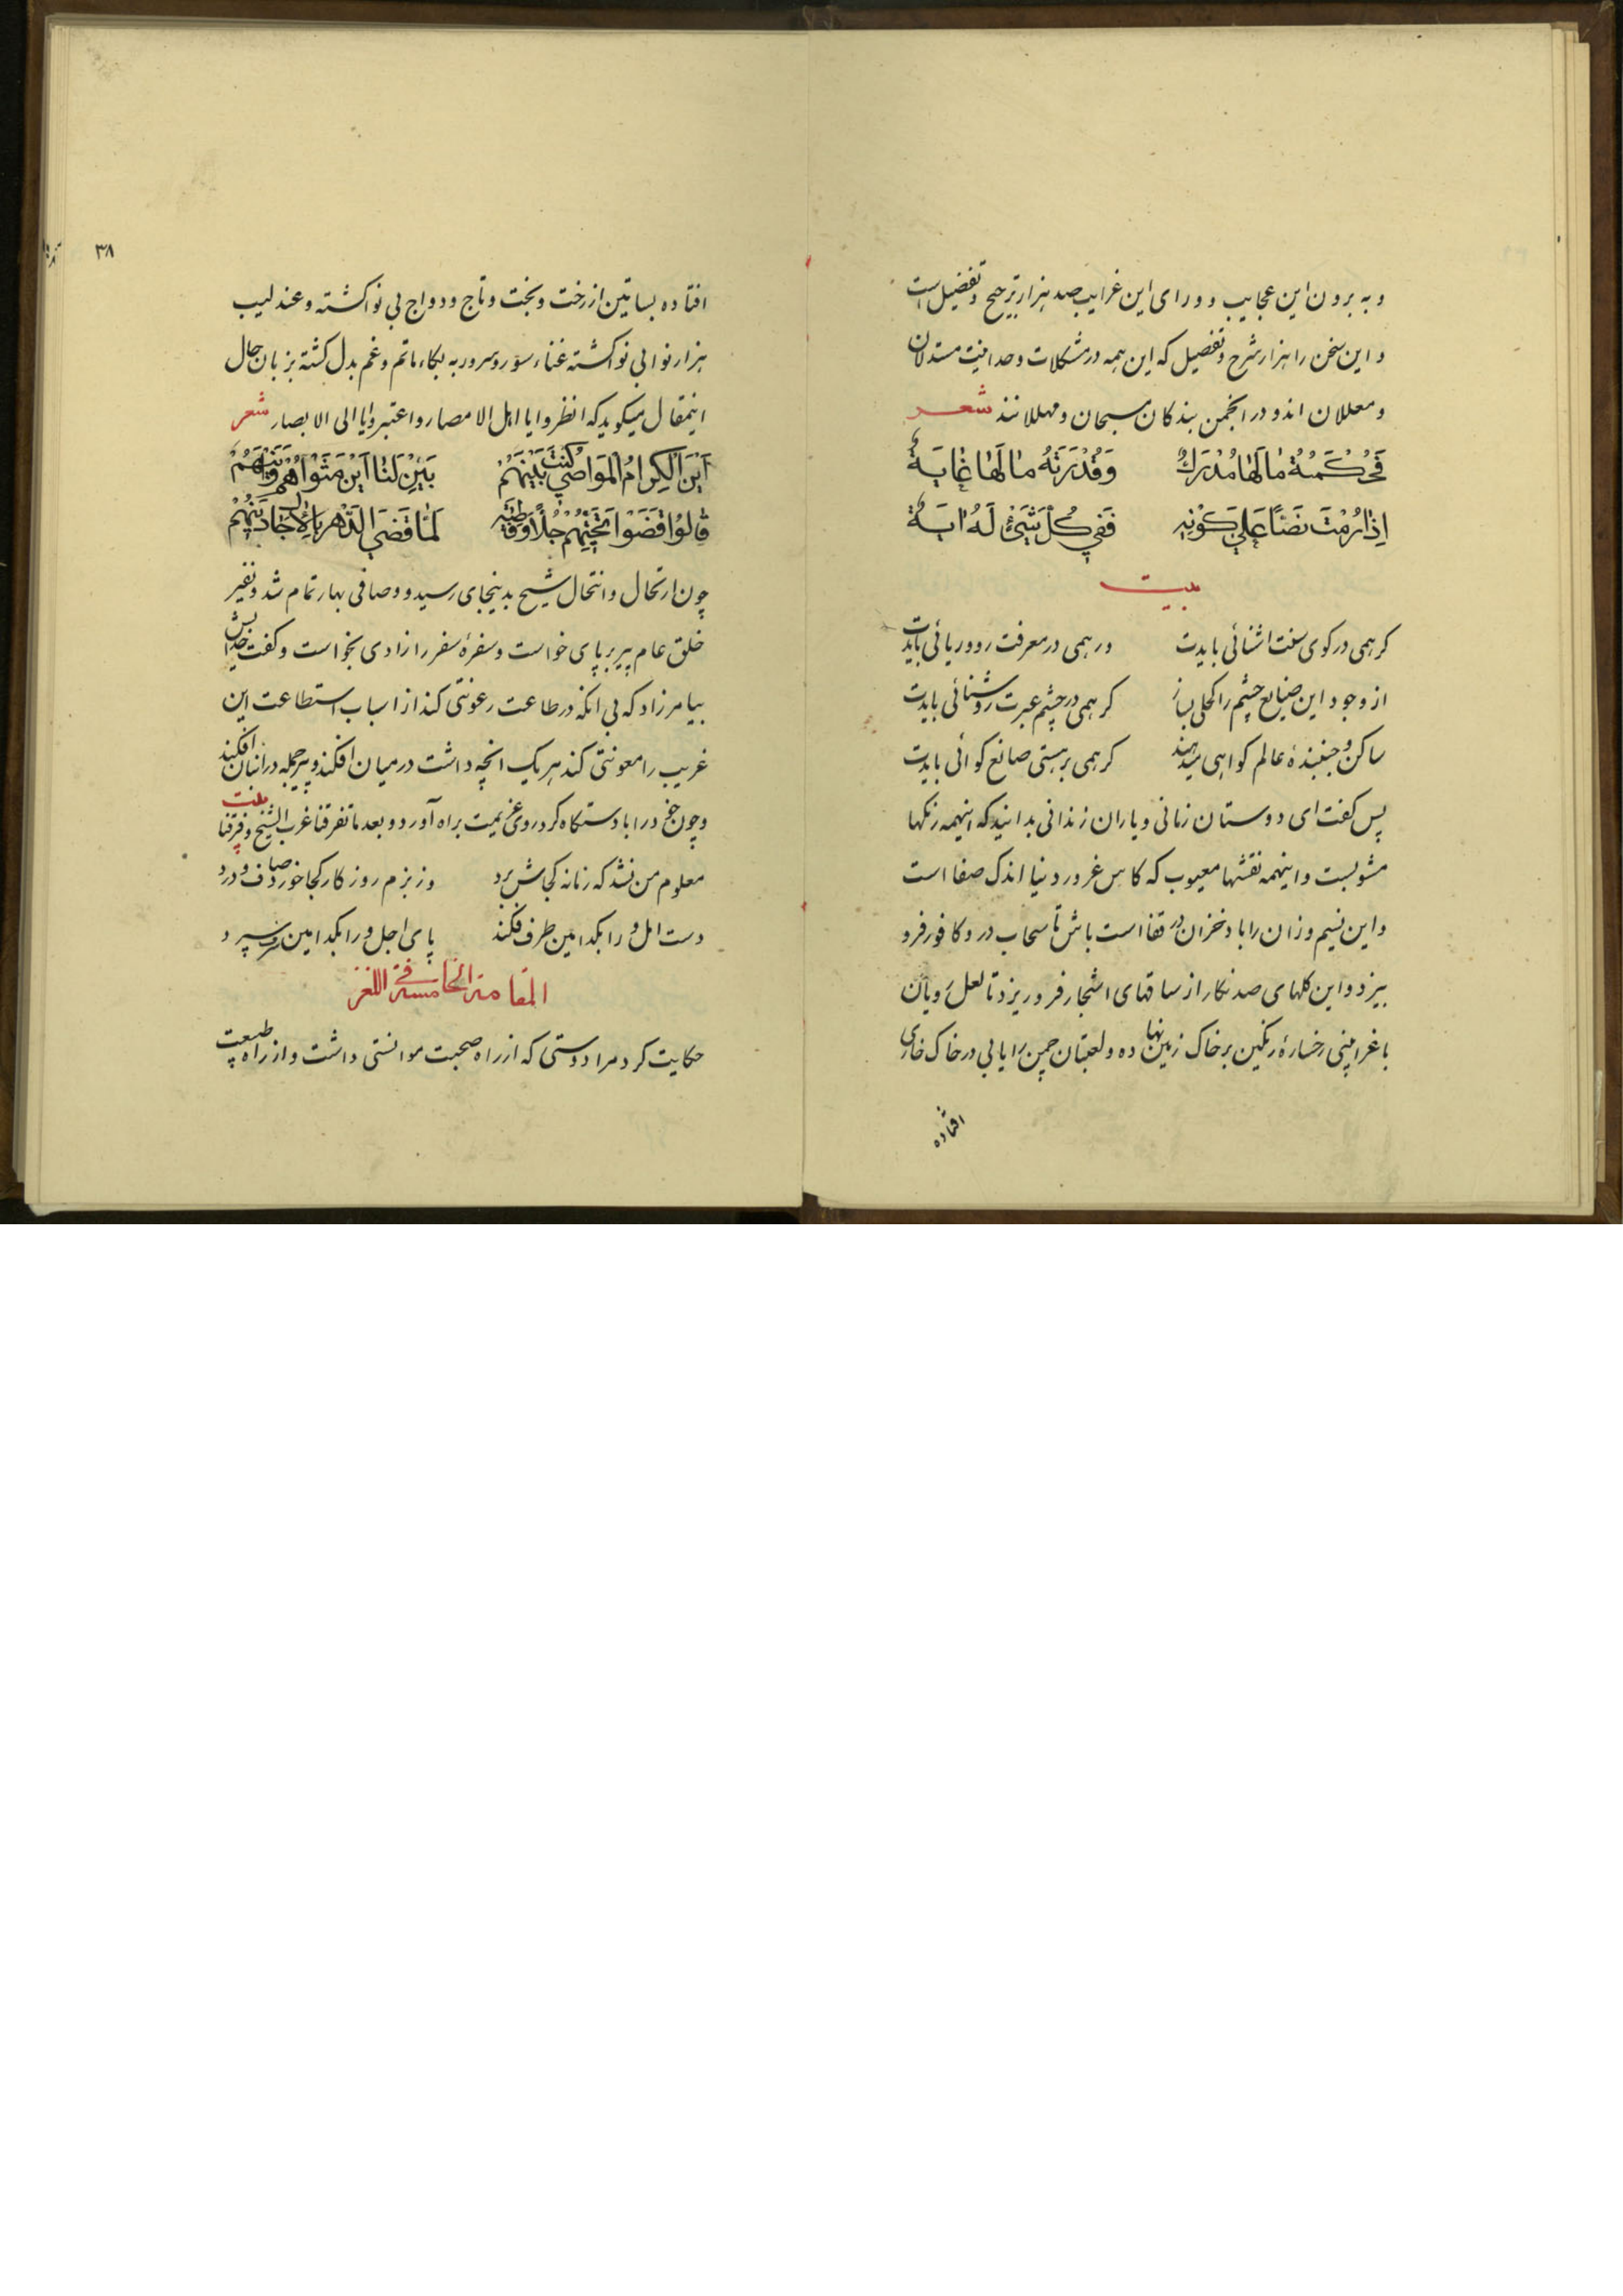 و به برون این عجایب و ورای این غرایب صد هزار ترجیح و تفضیل است
و این سخن را هزار شرح و تفصیل که این همه در مشکلات وحدانیت مستدلان
و معللان اند و در انجمن بندکان مسبحان و مهللانند شعر
فحکمة ما لها مدرک وقدرته ما لها غایة
اذا رمت نصا علی کونه ففی کل شیئ له ایة
بیت
کر همی در کوی سنت اشنائی بایدت ور همی در معرفت رو و ریائی بایدت
از وجود این صنایع چشم را کحلی بساز کر همی در چشم عبرت روشنائی بایدت
ساکن و جنبندهٔ عالم کواهی میدهند کر همی بر هستی صانع کوائی بایدت
پس کفت ای دوستان زمانی و یاران زندانی بدانید که اینهمه رنکها
مشوبست و اینهمه نقشها معیوب که کاس غرور دنیا اندک صفا است
و این نسیم وزان را باد خزان در قفا است باش تا سحاب در و کافور فرو
بیزد و این کلهای صد نکار از ساقهای اشجار فرو ریزد تا لعل رویان
باغ را بینی رخسارهٔ رنکین بر خاک زمین نهاده و لعبتان چمن را یابی در خاک خاری
افتاده
٣٨
افتاده بساتین از رخت و بخت و تاج و دواج بی نوا کشته و عندلیب
هزار نوا بی نوا کشته غناء سور و سرور به بکاء ماتم و غم بدل کشته بزبان حال
اینمقال میکوید که انظروا یا اهل الامصار واعتبروا یا الی الابصار شعر
این الکرام المواضی کنت بینهم بین لنا این مثواهم
قالوا قضوا لما قضی الدهر
چون ارتحال و انتحال شیخ بدینجای رسید و وصافی بهار تمام شد و نفیر
خلق عام پیر بر پای خواست و سفرهٔ سفر را زادی بخواست و کفت خدایش
بیامرزاد که بی انکه در طاعت رعونتی کند از اسباب استطاعت این
غریب را معونتی کند هر یک انچه داشت در میان افکند و پیر جمله در انبان افکند
و چون در اباد ستکاه کرد روی عزیمت براه آورد و بعد ما تفرقنا غرب الشیخ و شرقنا بیت
معلوم من نشد که زمانه کجاش برد وز بزم روزکار کجا خورد صاف و درد
دست امل ورا بکدامین طرف فکند پای اجل ورا بکدامین زمین سپرد
المقامة الخامسة فی اللغز
حکایت کرد مرا دوستی که از راه صحبت موانستی داشت و از راه طبیعت